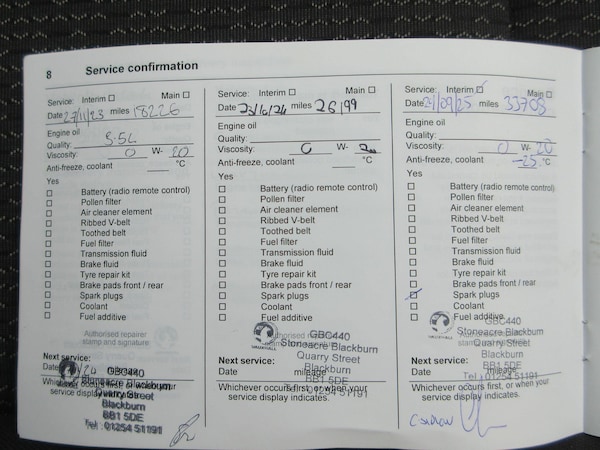 8 Service confirmation
Service: Interim ☐ Main ☐
Date 27/11/23 miles 18226
Engine oil
Quality: 5.5L
Viscosity: 0 W- 20
Anti-freeze, coolant °C
Yes
☐ Battery (radio remote control)
☐ Pollen filter
☐ Air cleaner element
☐ Ribbed V-belt
☐ Toothed belt
☐ Fuel filter
☐ Transmission fluid
☐ Brake fluid
☐ Tyre repair kit
☐ Brake pads front / rear
☐ Spark plugs
☐ Coolant
☐ Fuel additive
Authorised repairer
stamp and signature
Next service:
Date
Whichever occurs first, or when your
service display indicates.
GBC440
Stoneacre Blackburn
Quarry Street
Blackburn
BB1 5DE
Tel : 01254 51191
Service: Interim ☐ Main ☐
Date 23/10/24 miles 26199
Engine oil
Quality:
Viscosity: 0 W-
Anti-freeze, coolant °C
Yes
☐ Battery (radio remote control)
☐ Pollen filter
☐ Air cleaner element
☐ Ribbed V-belt
☐ Toothed belt
☐ Fuel filter
☐ Transmission fluid
☐ Brake fluid
☐ Tyre repair kit
☐ Brake pads front / rear
☐ Spark plugs
☐ Coolant
☐ Fuel additive
VAUXHALL
GBC440
Stoneacre Blackburn
Quarry Street
Blackburn
BB1 5DE
Tel : 01254 51191
Next service:
Date mileage
Whichever occurs first, or when your
service display indicates.
Service: Interim ☑ Main ☐
Date 21/09/25 miles 33703
Engine oil
Quality:
Viscosity: 0 W- 20
Anti-freeze, coolant -25 °C
Yes
☐ Battery (radio remote control)
☐ Pollen filter
☐ Air cleaner element
☐ Ribbed V-belt
☐ Toothed belt
☐ Fuel filter
☐ Transmission fluid
☐ Brake fluid
☐ Tyre repair kit
☐ Brake pads front / rear
☑ Spark plugs
☐ Coolant
☐ Fuel additive
GBC440
Stoneacre Blackburn
Quarry Street
Blackburn
BB1 5DE
Tel : 01254 51191
Next service:
Date mileage
Whichever occurs first, or when your
service display indicates.